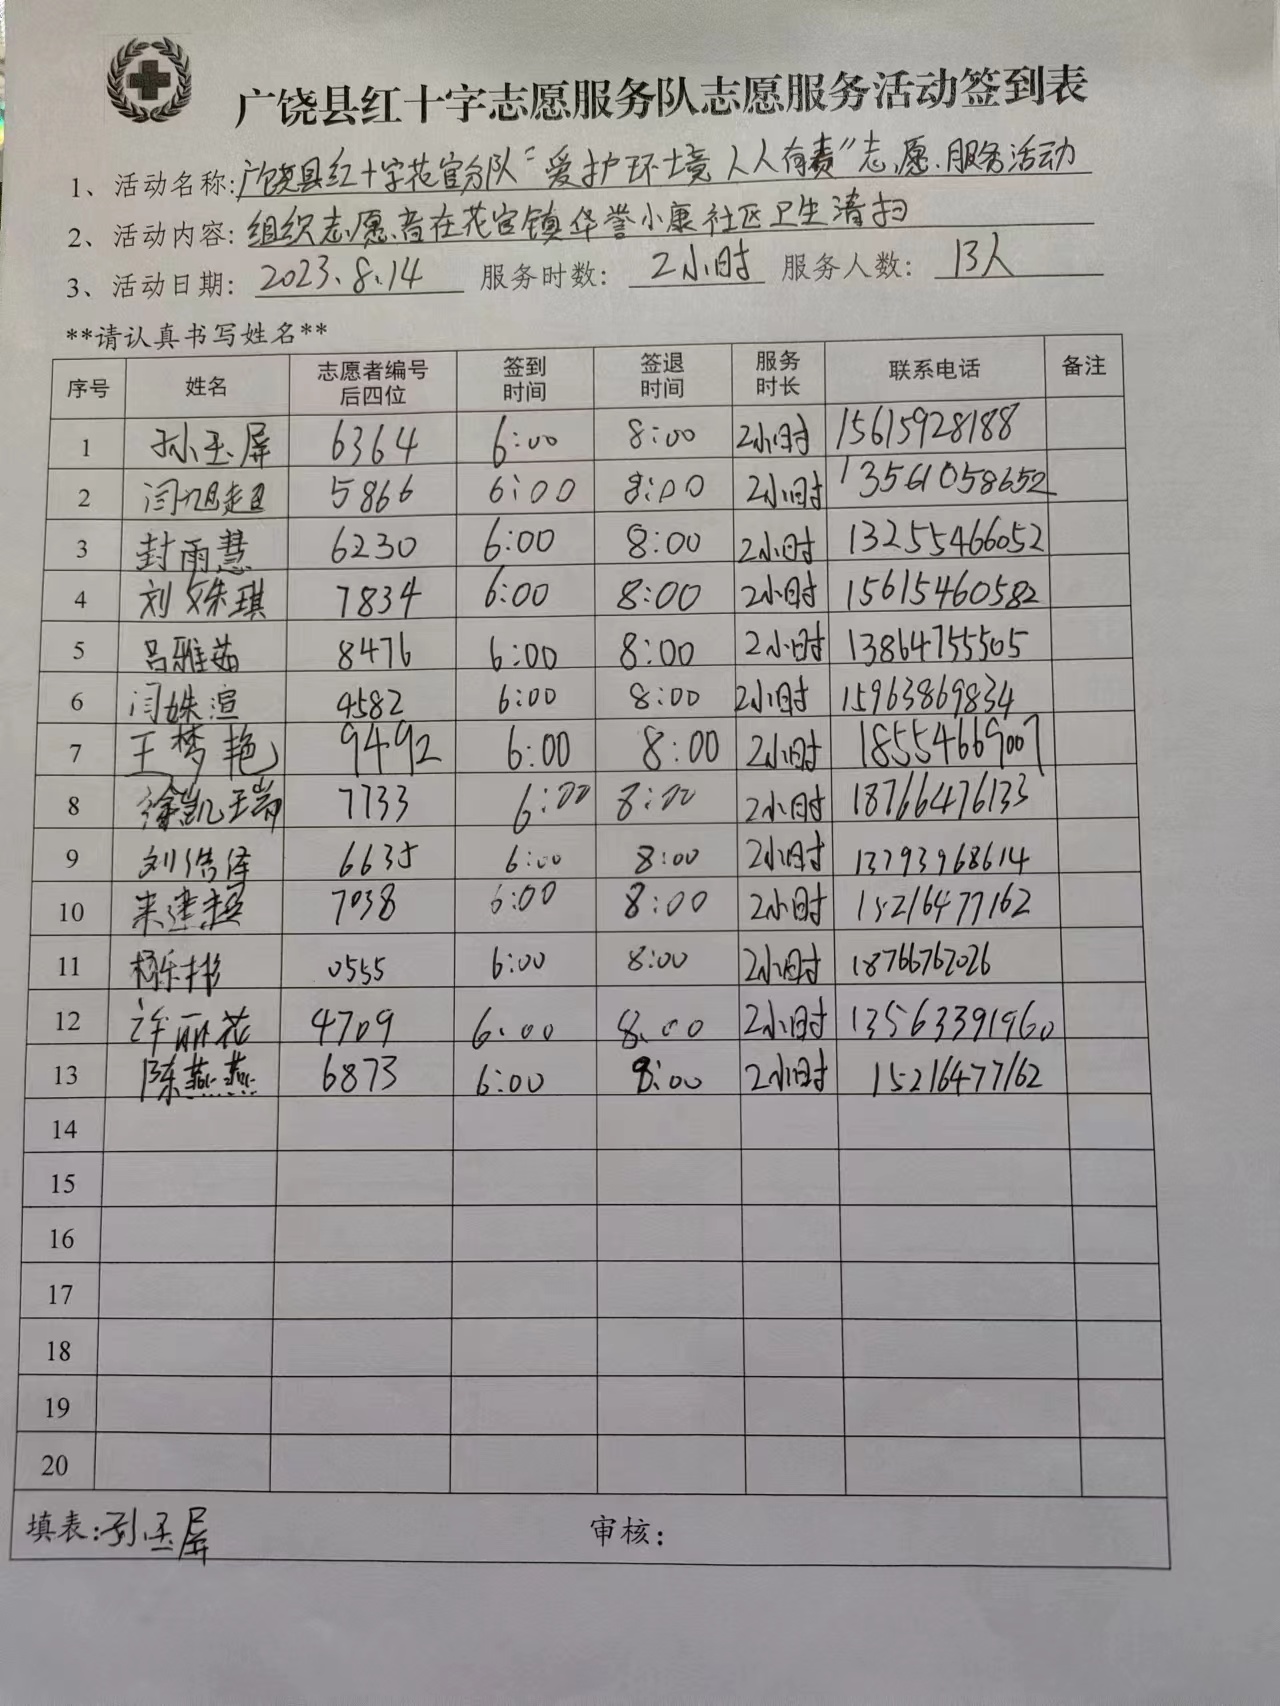 广饶县红十字志愿服务队志愿服务活动签到表
1、活动名称:广饶县红十字花官分队“爱护环境人人有责”志愿服务活动
2、活动内容:组织志愿者在花官镇华誉小康社区卫生清扫
3、活动日期: 2023.8.14 服务时数: 2小时 服务人数: 13人
**请认真书写姓名**
序号 姓名 志愿者编号后四位 签到时间 签退时间 服务时长 联系电话 备注
1 孙玉屏 6364 6:00 8:00 2小时 15615928188
2 闫旭超 5866 6:00 8:00 2小时 13561058652
3 封雨慧 6230 6:00 8:00 2小时 13255466052
4 刘姝琪 7834 6:00 8:00 2小时 15615460582
5 吕雅茹 8476 6:00 8:00 2小时 13864755505
6 闫姝渲 9582 6:00 8:00 2小时 15963869834
7 王梦艳 9492 6:00 8:00 2小时 18554669007
8 徐凯瑞 7733 6:00 8:00 2小时 18766476133
9 刘浩泽 6635 6:00 8:00 2小时 13793968614
10 宋建超 7038 6:00 8:00 2小时 15216477162
11 0555 6:00 8:00 2小时 18766762026
12 许丽花 4709 6:00 8:00 2小时 13563391960
13 陈燕燕 6873 6:00 8:00 2小时 15216477162
14
15
16
17
18
19
20
填表:孙玉屏 审核: